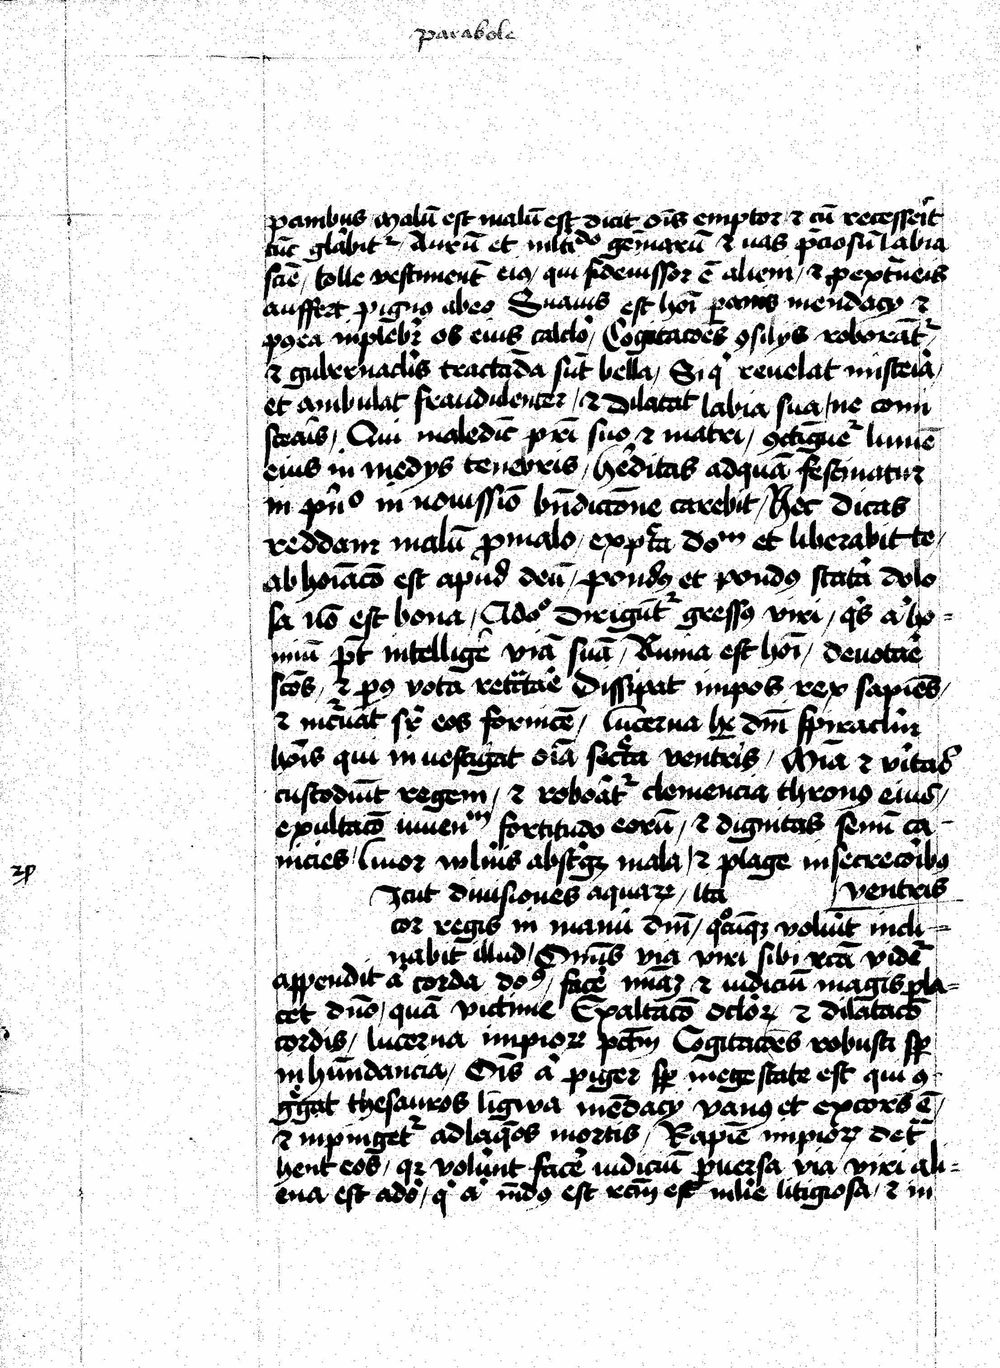 parabole
pambus malū est malū est dicit oīs emptor et cū recesserīt
tūc glābitr Aurū et mltido gēmarū et uas pciosū labia
sciē / tolle vestimentū eius / qui fideiussor ē alieni / et p extneis
auffret pignus abeo Suauis est hoī panis mendacy et
postea inplebr os eius calclo / Cogitacoes gsilys roborātr /
et gubernaclis tractāda sūt bella / Si q reuelat misteia /
et ambulat fraudulenter / et dilatat labia sua / ne comi
sceais / Qui maledic pri suo et matri / extiguer lumē
eius in medys tenebris / hēditas ad quā festinatur
in pno in nouissio bndictōne carebit / Nec dicas
reddam malū p malo / expta dom et liberabit te /
abhoiācō est apud deū / pondus et pondus stata dolo
sa nō est bona / A do dirigūtr gressus viri / qs a ho=
minū pt intelligē viā suā / Ruina est hoī / deuotaē
scōs / et post vota retctaē Dissipat impos rex sapiēs /
et incuat sr eos fornicē / lucerna dnī spiraclm
hoīs qui inuestigat oīa secta ventris / Miā et vitas
custodiūt regem / et roboatr clemencia thronus eius /
exultacō iuuenm fortitudo eorū / et dignitas senū ca-
nicies / Liuor vulnis abstgz mala / et plage in secretoibus
Icut diuisiones aquarz / Ita ventris
cor regis in manū dnī / qcūqz voluit incli=
nabit illud / Omīs via viri sibi rcā vidē
appendit a corda dos / facē miaz et iudiciū magis pla=
cet dno / quā victime Exaltacō oclorz et dilatacō
cordis / lucerna impiorz pctm Cogitacōes robusti sp
in hūndancia / Oīs a piger sp in egestate est qui con
ggat thesauros ligwa mēdacy vanus et excors ē /
et inpingetr ad laqeos mortis / Rapīe impiorz det
hent eos / qz voluīnt facē iudiciū puersa via viri ali=
ena est ado / q a mdus est rcm est mlie litigiosa / et in